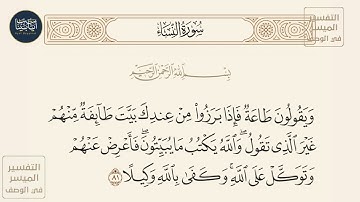 سُورَةُ النِّسَاءِ
بِسْمِ اللَّهِ الرَّحْمَٰنِ الرَّحِيمِ
وَيَقُولُونَ طَاعَةٌ فَإِذَا بَرَزُوا۟ مِنْ عِندِكَ بَيَّتَ طَآئِفَةٌ مِّنْهُمْ
غَيْرَ ٱلَّذِى تَقُولُ ۖ وَٱللَّهُ يَكْتُبُ مَا يُبَيِّتُونَ ۖ فَأَعْرِضْ عَنْهُمْ
وَتَوَكَّلْ عَلَى ٱللَّهِ ۚ وَكَفَىٰ بِٱللَّهِ وَكِيلًا ٨١
التفسير
الميسر
في الوصف
التفسير
الميسر
في الوصف